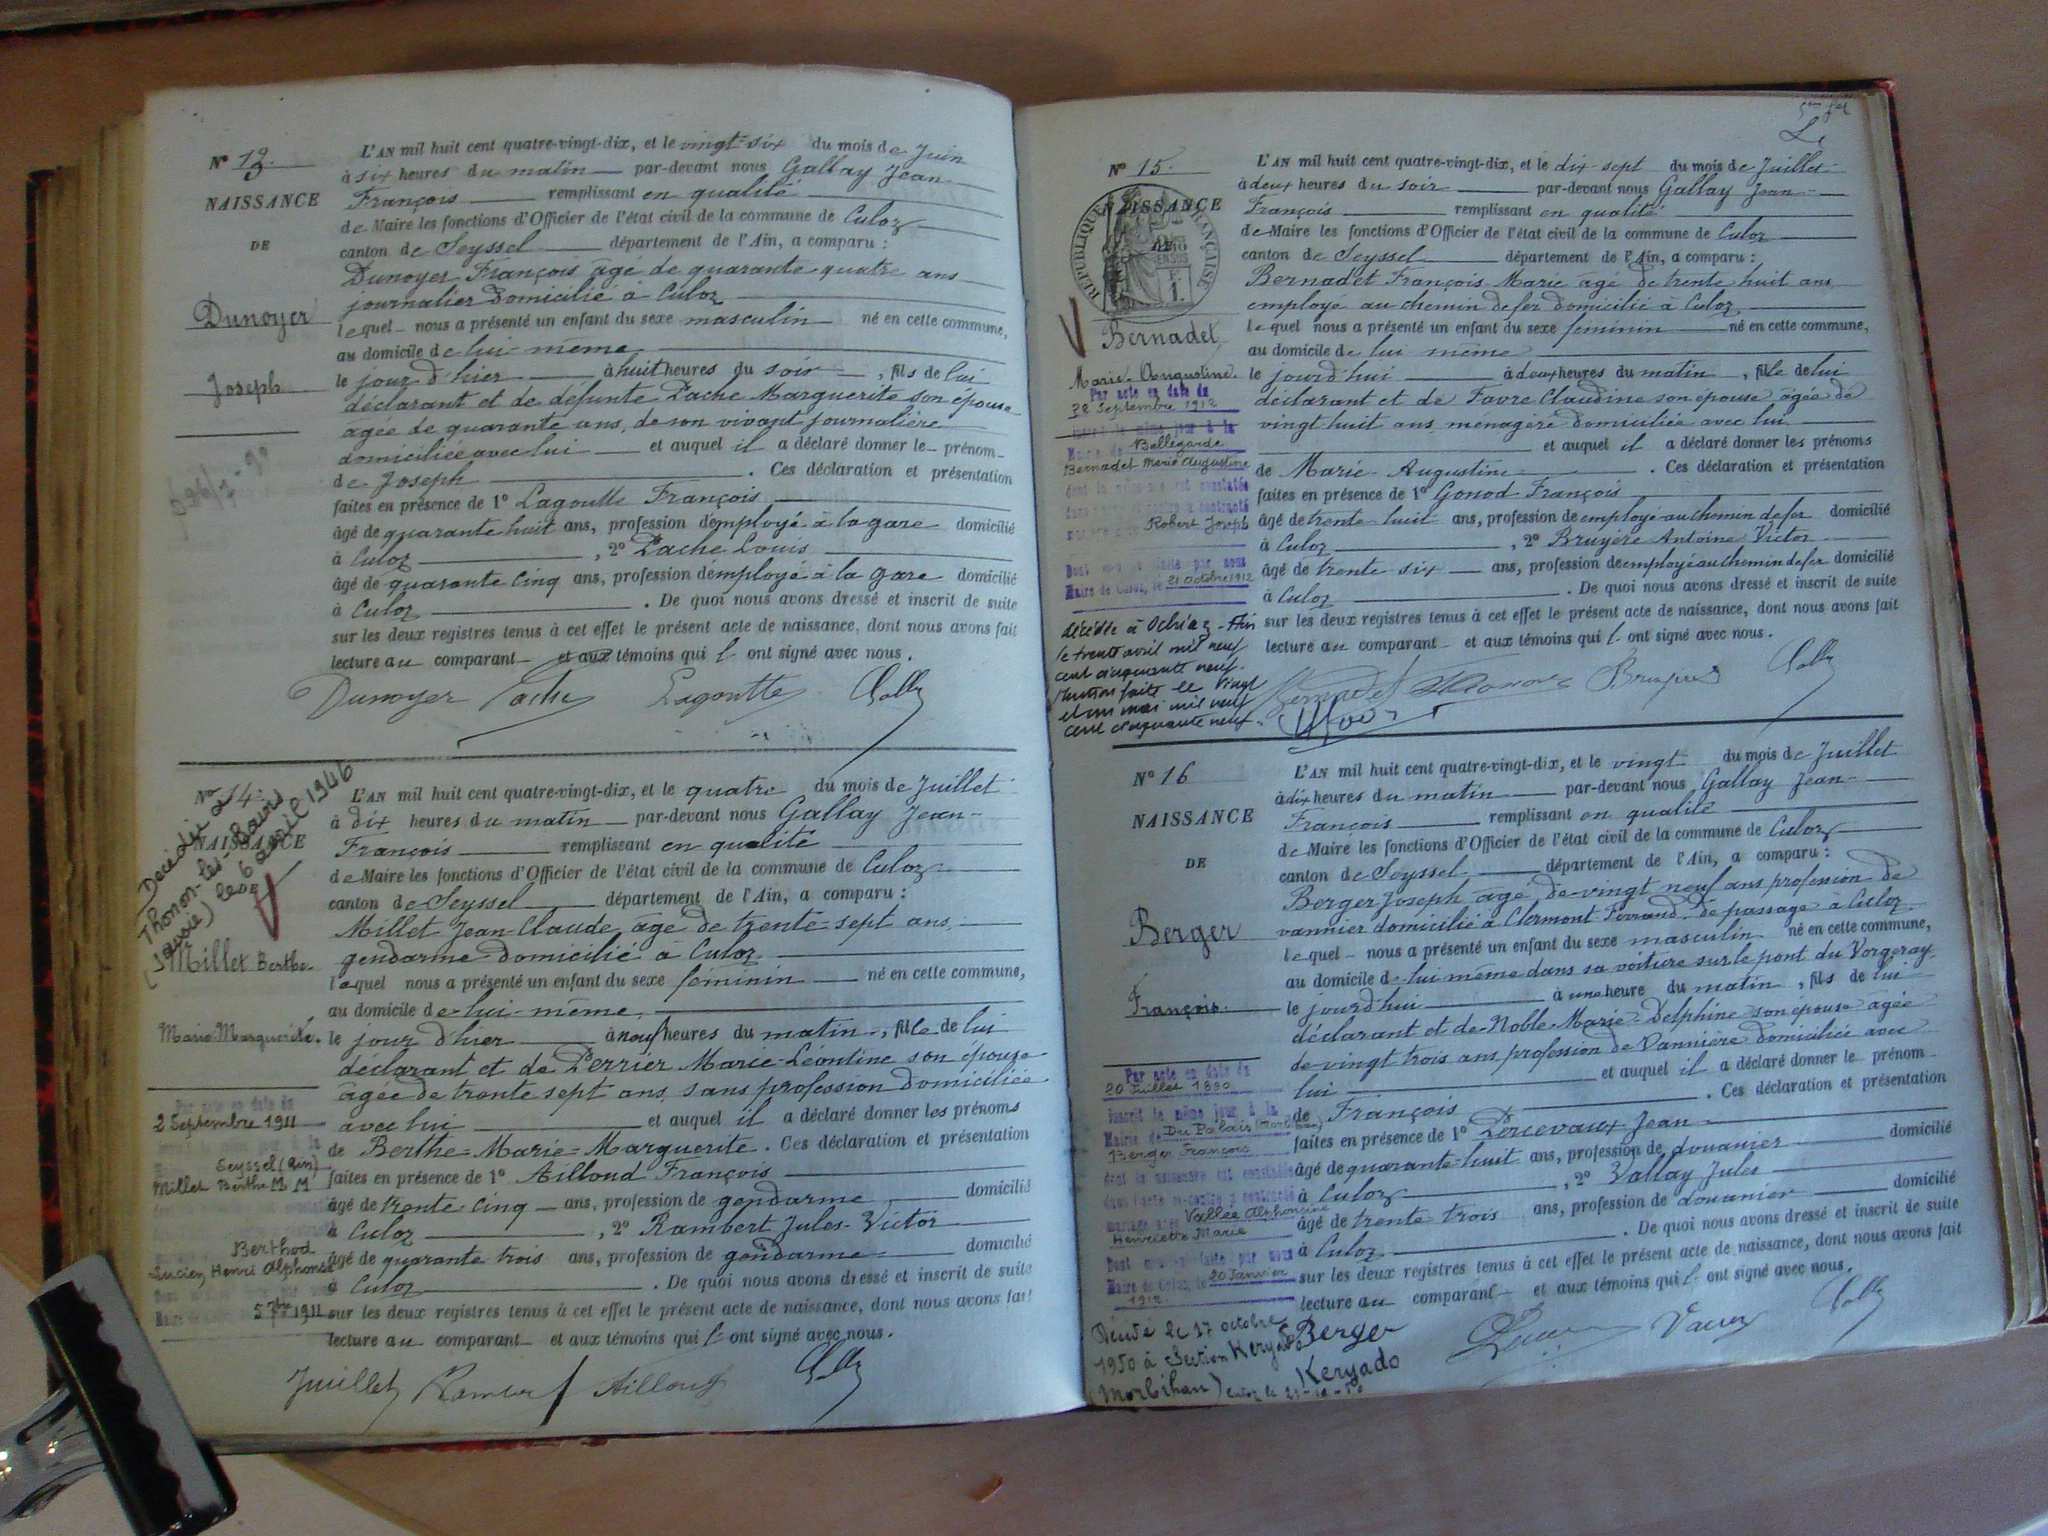 N° 13.
NAISSANCE
DE
Dunoyer
Joseph
L'AN mil huit cent quatre-vingt-dix, et le vingt-six du mois de Juin
à six heures du matin par-devant nous Gallay Jean-
François remplissant en qualité
de Maire les fonctions d'Officier de l'état civil de la commune de Culoz
canton de Seyssel département de l'Ain, a comparu :
Dunoyer François âgé de quarante quatre ans
journalier domicilié à Culoz
lequel nous a présenté un enfant du sexe masculin né en cette commune,
au domicile de lui-même
le jour d'hier à huit heures du soir, fils de lui
déclarant et de défunte Pache Marguerite son épouse
âgée de quarante ans, de son vivant journalière
domiciliée avec lui et auquel il a déclaré donner le prénom
de Joseph. Ces déclaration et présentation
faites en présence de 1° Lagoutte François
âgé de quarante huit ans, profession d'employé à la gare domicilié
à Culoz, 2° Pache Louis
âgé de quarante cinq ans, profession d'employé à la gare domicilié
à Culoz. De quoi nous avons dressé et inscrit de suite
sur les deux registres tenus à cet effet le présent acte de naissance, dont nous avons fait
lecture au comparant et aux témoins qui l'ont signé avec nous.
Dunoyer Pache Lagoutte
N° 14.
NAISSANCE
DE
Décédée à
Thonon-les-Bains
(Savoie) le 6 avril 1946
Millet Berthe
Marie Marguerite.
Par acte en date du
2 Septembre 1911
Seyssel (Ain)
Millet Berthe M M
Berthod
Lucien Henri Alphonse
5 7bre 1911
L'AN mil huit cent quatre-vingt-dix, et le quatre du mois de Juillet
à dix heures du matin par-devant nous Gallay Jean-
François remplissant en qualité
de Maire les fonctions d'Officier de l'état civil de la commune de Culoz
canton de Seyssel département de l'Ain, a comparu :
Millet Jean-Claude âgé de trente-sept ans,
gendarme domicilié à Culoz
lequel nous a présenté un enfant du sexe féminin né en cette commune,
au domicile de lui-même,
le jour d'hier à neuf heures du matin, fille de lui
déclarant et de Perrier Marie-Léontine son épouse
âgée de trente sept ans, sans profession domiciliée
avec lui et auquel il a déclaré donner les prénoms
de Berthe-Marie-Marguerite. Ces déclaration et présentation
faites en présence de 1° Ailloud François
âgé de trente cinq ans, profession de gendarme domicilié
à Culoz, 2° Rambert Jules-Victor
âgé de quarante trois ans, profession de gendarme domicilié
à Culoz. De quoi nous avons dressé et inscrit de suite
sur les deux registres tenus à cet effet le présent acte de naissance, dont nous avons fait
lecture au comparant et aux témoins qui l'ont signé avec nous.
Ailloud
N° 15.
NAISSANCE
RÉPUBLIQUE FRANÇAISE
Bernadet
Marie-Augustine.
Par acte en date du
28 Septembre 1912
inscrit le même jour à la
Mairie de Bellegarde
Bernadet Marie Augustine
dont la naissance est constatée
Robert Joseph
Dont mention faite par nous
Maire de Culoz, le 21 octobre 1912
Décédée à Ochiaz - Ain
le trente avril mil neuf
cent cinquante neuf.
Mention faite le vingt
et un mai mil neuf
cent cinquante neuf.
L'AN mil huit cent quatre-vingt-dix, et le dix-sept du mois de Juillet
à deux heures du soir par-devant nous Gallay Jean-
François remplissant en qualité
de Maire les fonctions d'Officier de l'état civil de la commune de Culoz
canton de Seyssel département de l'Ain, a comparu :
Bernadet François Marie âgé de trente huit ans
employé au chemin de fer domicilié à Culoz
lequel nous a présenté un enfant du sexe féminin né en cette commune,
au domicile de lui même
le jourd'hui à deux heures du matin, fille de lui
déclarant et de Favre Claudine son épouse âgée de
vingt-huit ans, ménagère domiciliée avec lui
et auquel il a déclaré donner les prénoms
de Marie-Augustine. Ces déclaration et présentation
faites en présence de 1° Gonod François
âgé de trente-huit ans, profession de employé au chemin de fer domicilié
à Culoz, 2° Bruyère Antoine Victor
âgé de trente six ans, profession de employé au chemin de fer domicilié
à Culoz. De quoi nous avons dressé et inscrit de suite
sur les deux registres tenus à cet effet le présent acte de naissance, dont nous avons fait
lecture au comparant et aux témoins qui l'ont signé avec nous.
Bernadet Gonod
N° 16
NAISSANCE
DE
Berger
François.
Par acte en date du
20 Juillet 1890
inscrit le même jour à la
Mairie de Du Palais (Morbihan)
Berger François
dont la naissance est constatée
dans l'acte ci-contre a contracté
mariage avec Vallée Alphonsine
Henriette Marie
Dont mention faite par nous
Maire de Culoz, le 20 Janvier
1912.
Décédé le 17 octobre
1950 à Section Keryado
(Morbihan)
L'AN mil huit cent quatre-vingt-dix, et le vingt du mois de Juillet
à dix heures du matin par-devant nous Gallay Jean-
François remplissant en qualité
de Maire les fonctions d'Officier de l'état civil de la commune de Culoz
canton de Seyssel département de l'Ain, a comparu :
Berger Joseph âgé de vingt neuf ans profession de
vannier domicilié à Clermont Ferrand de passage à Culoz
lequel nous a présenté un enfant du sexe masculin né en cette commune,
au domicile de lui même dans sa voiture sur le pont du Vorgeray
le jourd'hui à une heure du matin, fils de lui
déclarant et de Noble Marie-Delphine son épouse âgée
de vingt trois ans profession de Vannière domiciliée avec
lui et auquel il a déclaré donner le prénom
de François. Ces déclaration et présentation
faites en présence de 1° Percevaux Jean
âgé de quarante-huit ans, profession de douanier domicilié
à Culoz, 2° Vallay Jules
âgé de trente trois ans, profession de douanier domicilié
à Culoz. De quoi nous avons dressé et inscrit de suite
sur les deux registres tenus à cet effet le présent acte de naissance, dont nous avons fait
lecture au comparant et aux témoins qui l'ont signé avec nous.
Berger
Keryado